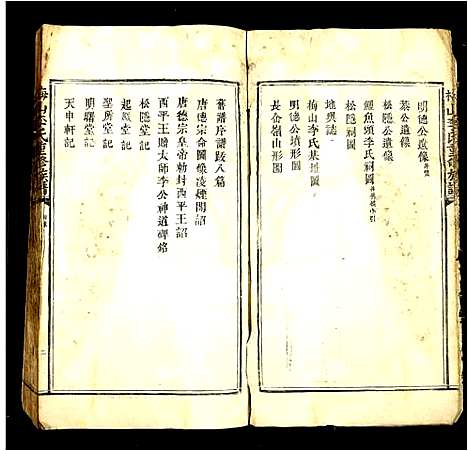 明德公遺像
公遺像
松隱公遺像
鯉魚頭李氏祠圖
松隱祠圖
地輿誌
梅山李氏基址圖
明德公山形圖
長企嶺山形圖
舊譜序譜跋八篇
唐德宗命圖像凌煙閣詔
唐德宗皇帝勅封西平王詔
西平王贈太師李公神道碑銘
松隱堂記
起巖堂記
聖所堂記
明驛堂記
天申軒記
二